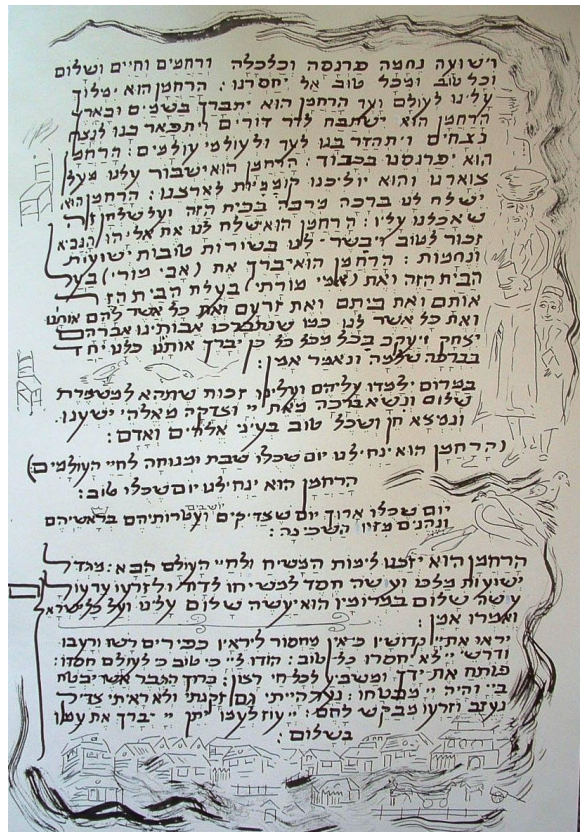 וישועה נחמה פרנסה וכלכלה ורחמים וחיים ושלום
וכל טוב ומכל טוב אל יחסרנו: הרחמן הוא ימלוך
עלינו לעולם ועד הרחמן הוא יתברך בשמים ובארץ
הרחמן הוא ישתבח לדור דורים ויתפאר בנו לנצח
נצחים ויתהדר בנו לעד ולעולמי עולמים: הרחמן
הוא יפרנסנו בכבוד: הרחמן הוא ישבור עלנו מעל
צוארנו והוא יוליכנו קוממיות לארצנו: הרחמן הוא
ישלח לנו ברכה מרבה בבית הזה ועל שלחן זה
שאכלנו עליו: הרחמן הוא ישלח לנו את אליהו הנביא
זכור לטוב ויבשר לנו בשורות טובות ישועות
ונחמות: הרחמן הוא יברך את (אבי מורי) בעל
הבית הזה ואת (אמי מורתי) בעלת הבית הזה
אותם ואת ביתם ואת זרעם ואת כל אשר להם אותנו
ואת כל אשר לנו כמו שנתברכו אבותינו אברהם
יצחק ויעקב בכל מכל כל כן יברך אותנו כלנו יחד
בברכה שלמה ונאמר אמן:
במרום ילמדו עליהם ועלינו זכות שתהא למשמרת
שלום ונשא ברכה מאת יי וצדקה מאלהי ישענו
ונמצא חן ושכל טוב בעיני אלהים ואדם:
(הרחמן הוא ינחילנו יום שכלו שבת ומנוחה לחיי העולמים)
הרחמן הוא ינחילנו יום שכלו טוב:
יום שכלו ארוך יום שצדיקים יושבים ועטרותיהם בראשיהם
ונהנים מזיו השכינה:
הרחמן הוא יזכנו לימות המשיח ולחיי העולם הבא: מגדל
ישועות מלכו ועשה חסד למשיחו לדוד ולזרעו עד עולם
עשה שלום במרומיו הוא יעשה שלום עלינו ועל כל ישראל
ואמרו אמן:
יראו את יי קדושיו כי אין מחסור ליראיו כפירים רשו ורעבו
ודרשי יי לא יחסרו כל טוב: הודו ליי כי טוב כי לעולם חסדו:
פותח את ידך ומשביע לכל חי רצון: ברוך הגבר אשר יבטח
ביי והיה יי מבטחו: נער הייתי גם זקנתי ולא ראיתי צדיק
נעזב וזרעו מבקש לחם: יי עוז לעמו יתן יי יברך את עמו
בשלום: